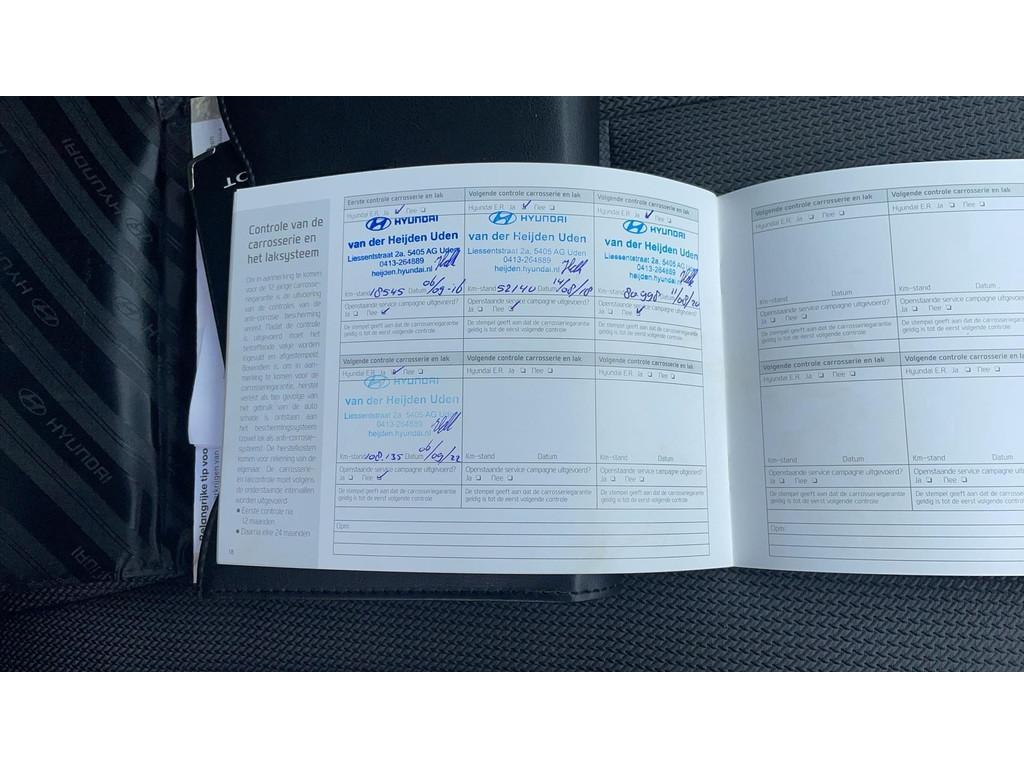 HYUNDAI
HYUNDAI
HYUNDAI
HYUNDAI
Belangrijke tip voo
Controle van de
carrosserie en
het laksysteem
Om in aanmerking te komen
voor de 12 jarige carrosserie-
garantie is de uitvoering
van de controles van de
anti-corrosie bescherming
vereist. Nadat de controle
is uitgevoerd moet het
betreffende vakje worden
ingevuld en afgestempeld.
Bovendien is, om in aan-
merking te komen voor de
carrosseriegarantie, herstel
vereist als ten gevolge van
het gebruik van de auto
schade is ontstaan aan
het beschermingssysteem
(zowel lak als anti-corrosie-
systeem). De herstelkosten
komen voor rekening van de
eigenaar. De carrosserie-
en lakcontrole moet volgens
de onderstaande intervallen
worden uitgevoerd:
• Eerste controle na
12 maanden
• Daarna elke 24 maanden
18
Eerste controle carrosserie en lak
Hyundai E.R. Ja ✓ Nee ❑
HYUNDAI
van der Heijden Uden
Liessentstraat 2a, 5405 AG Uden
0413-264889
heijden.hyundai.nl
Km-stand 18545 Datum 06/09-16
Openstaande service campagne uitgevoerd?
Ja ❑ Nee ✓
De stempel geeft aan dat de carrosseriegarantie
geldig is tot de eerst volgende controle
Volgende controle carrosserie en lak
Hyundai E.R. Ja ✓ Nee ❑
HYUNDAI
van der Heijden Uden
Liessentstraat 2a, 5405 AG Uden
0413-264889
heijden.hyundai.nl
Km-stand 52140 Datum 14/08/18
Openstaande service campagne uitgevoerd?
Ja ❑ Nee ✓
De stempel geeft aan dat de carrosseriegarantie
geldig is tot de eerst volgende controle
Volgende controle carrosserie en lak
Hyundai E.R. Ja ✓ Nee ❑
HYUNDAI
van der Heijden Uden
Liessentstraat 2a, 5405 AG Uden
0413-264889
heijden.hyundai.nl
Km-stand 80.998 Datum 11/08/20
Openstaande service campagne uitgevoerd?
Ja ❑ Nee ✓
De stempel geeft aan dat de carrosseriegarantie
geldig is tot de eerst volgende controle
Volgende controle carrosserie en lak
Hyundai E.R. Ja ✓ Nee ❑
HYUNDAI
van der Heijden Uden
Liessentstraat 2a, 5405 AG Uden
0413-264889
heijden.hyundai.nl
Km-stand 108.135 Datum 06/09/22
Openstaande service campagne uitgevoerd?
Ja ❑ Nee ✓
De stempel geeft aan dat de carrosseriegarantie
geldig is tot de eerst volgende controle
Volgende controle carrosserie en lak
Hyundai E.R. Ja ❑ Nee ❑
Km-stand Datum
Openstaande service campagne uitgevoerd?
Ja ❑ Nee ❑
De stempel geeft aan dat de carrosseriegarantie
geldig is tot de eerst volgende controle
Volgende controle carrosserie en lak
Hyundai E.R. Ja ❑ Nee ❑
Km-stand Datum
Openstaande service campagne uitgevoerd?
Ja ❑ Nee ❑
De stempel geeft aan dat de carrosseriegarantie
geldig is tot de eerst volgende controle
Opm:
Volgende controle carrosserie en lak
Hyundai E.R. Ja ❑ Nee ❑
Km-stand Datum
Openstaande service campagne uitgevoerd?
Ja ❑ Nee ❑
De stempel geeft aan dat de carrosseriegarantie
geldig is tot de eerst volgende controle
Volgende controle carrosserie en lak
Hyundai E.R. Ja ❑ Nee ❑
Km-stand Datum
Openstaande service campagne
Ja ❑ Nee ❑
De stempel geeft aan dat de carrosse
geldig is tot de eerst volgende controle
Volgende controle carrosserie en lak
Hyundai E.R. Ja ❑ Nee ❑
Km-stand Datum
Openstaande service campagne uitgevoerd?
Ja ❑ Nee ❑
De stempel geeft aan dat de carrosseriegarantie
geldig is tot de eerst volgende controle
Volgende controle carrosserie en
Hyundai E.R. Ja ❑ Nee ❑
Km-stand Datum
Openstaande service campagne
Ja ❑ Nee ❑
De stempel geeft aan dat de carross
geldig is tot de eerst volgende controle
Opm: